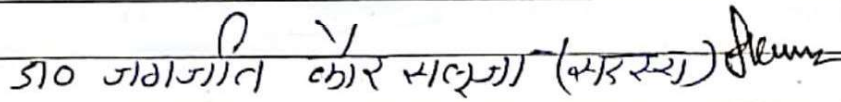 डा० जगजीत कौर सलूजा (सदस्य)